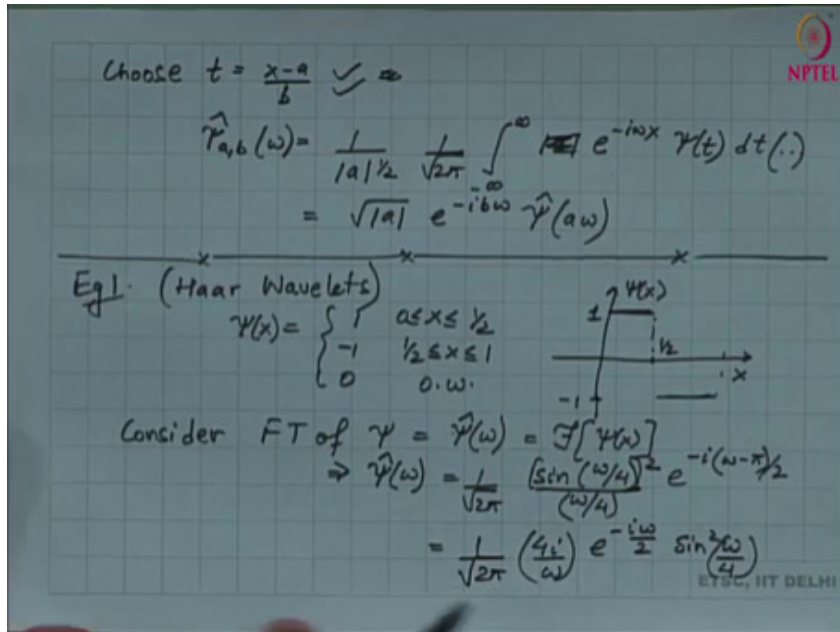 NPTEL
Choose t = \frac{x-a}{b} ✓ ⇒
\hat{ψ}_{a,b}(ω) = \frac{1}{|a|^{1/2}} \frac{1}{\sqrt{2π}} \int_{-∞}^{∞} e^{-iωx} ψ(t) dt (..)
= \sqrt{|a|} e^{-ibω} \hat{ψ}(aω)
Eg 1. (Haar Wavelets)
ψ(x) = { 1 a ≤ x ≤ 1/2
-1 1/2 ≤ x ≤ 1
0 o.w.
ψ(x)
1
1/2
x
-1
Consider FT of ψ = \hat{ψ}(ω) = ℱ[ψ(x)]
⇒ \hat{ψ}(ω) = \frac{1}{\sqrt{2π}} \frac{[sin(ω/4)]^2}{(ω/4)} e^{-i(ω-π)/2}
= \frac{1}{\sqrt{2π}} (\frac{4i}{ω}) e^{-\frac{iω}{2}} sin^2(\frac{ω}{4})
ETSC, IIT DELHI